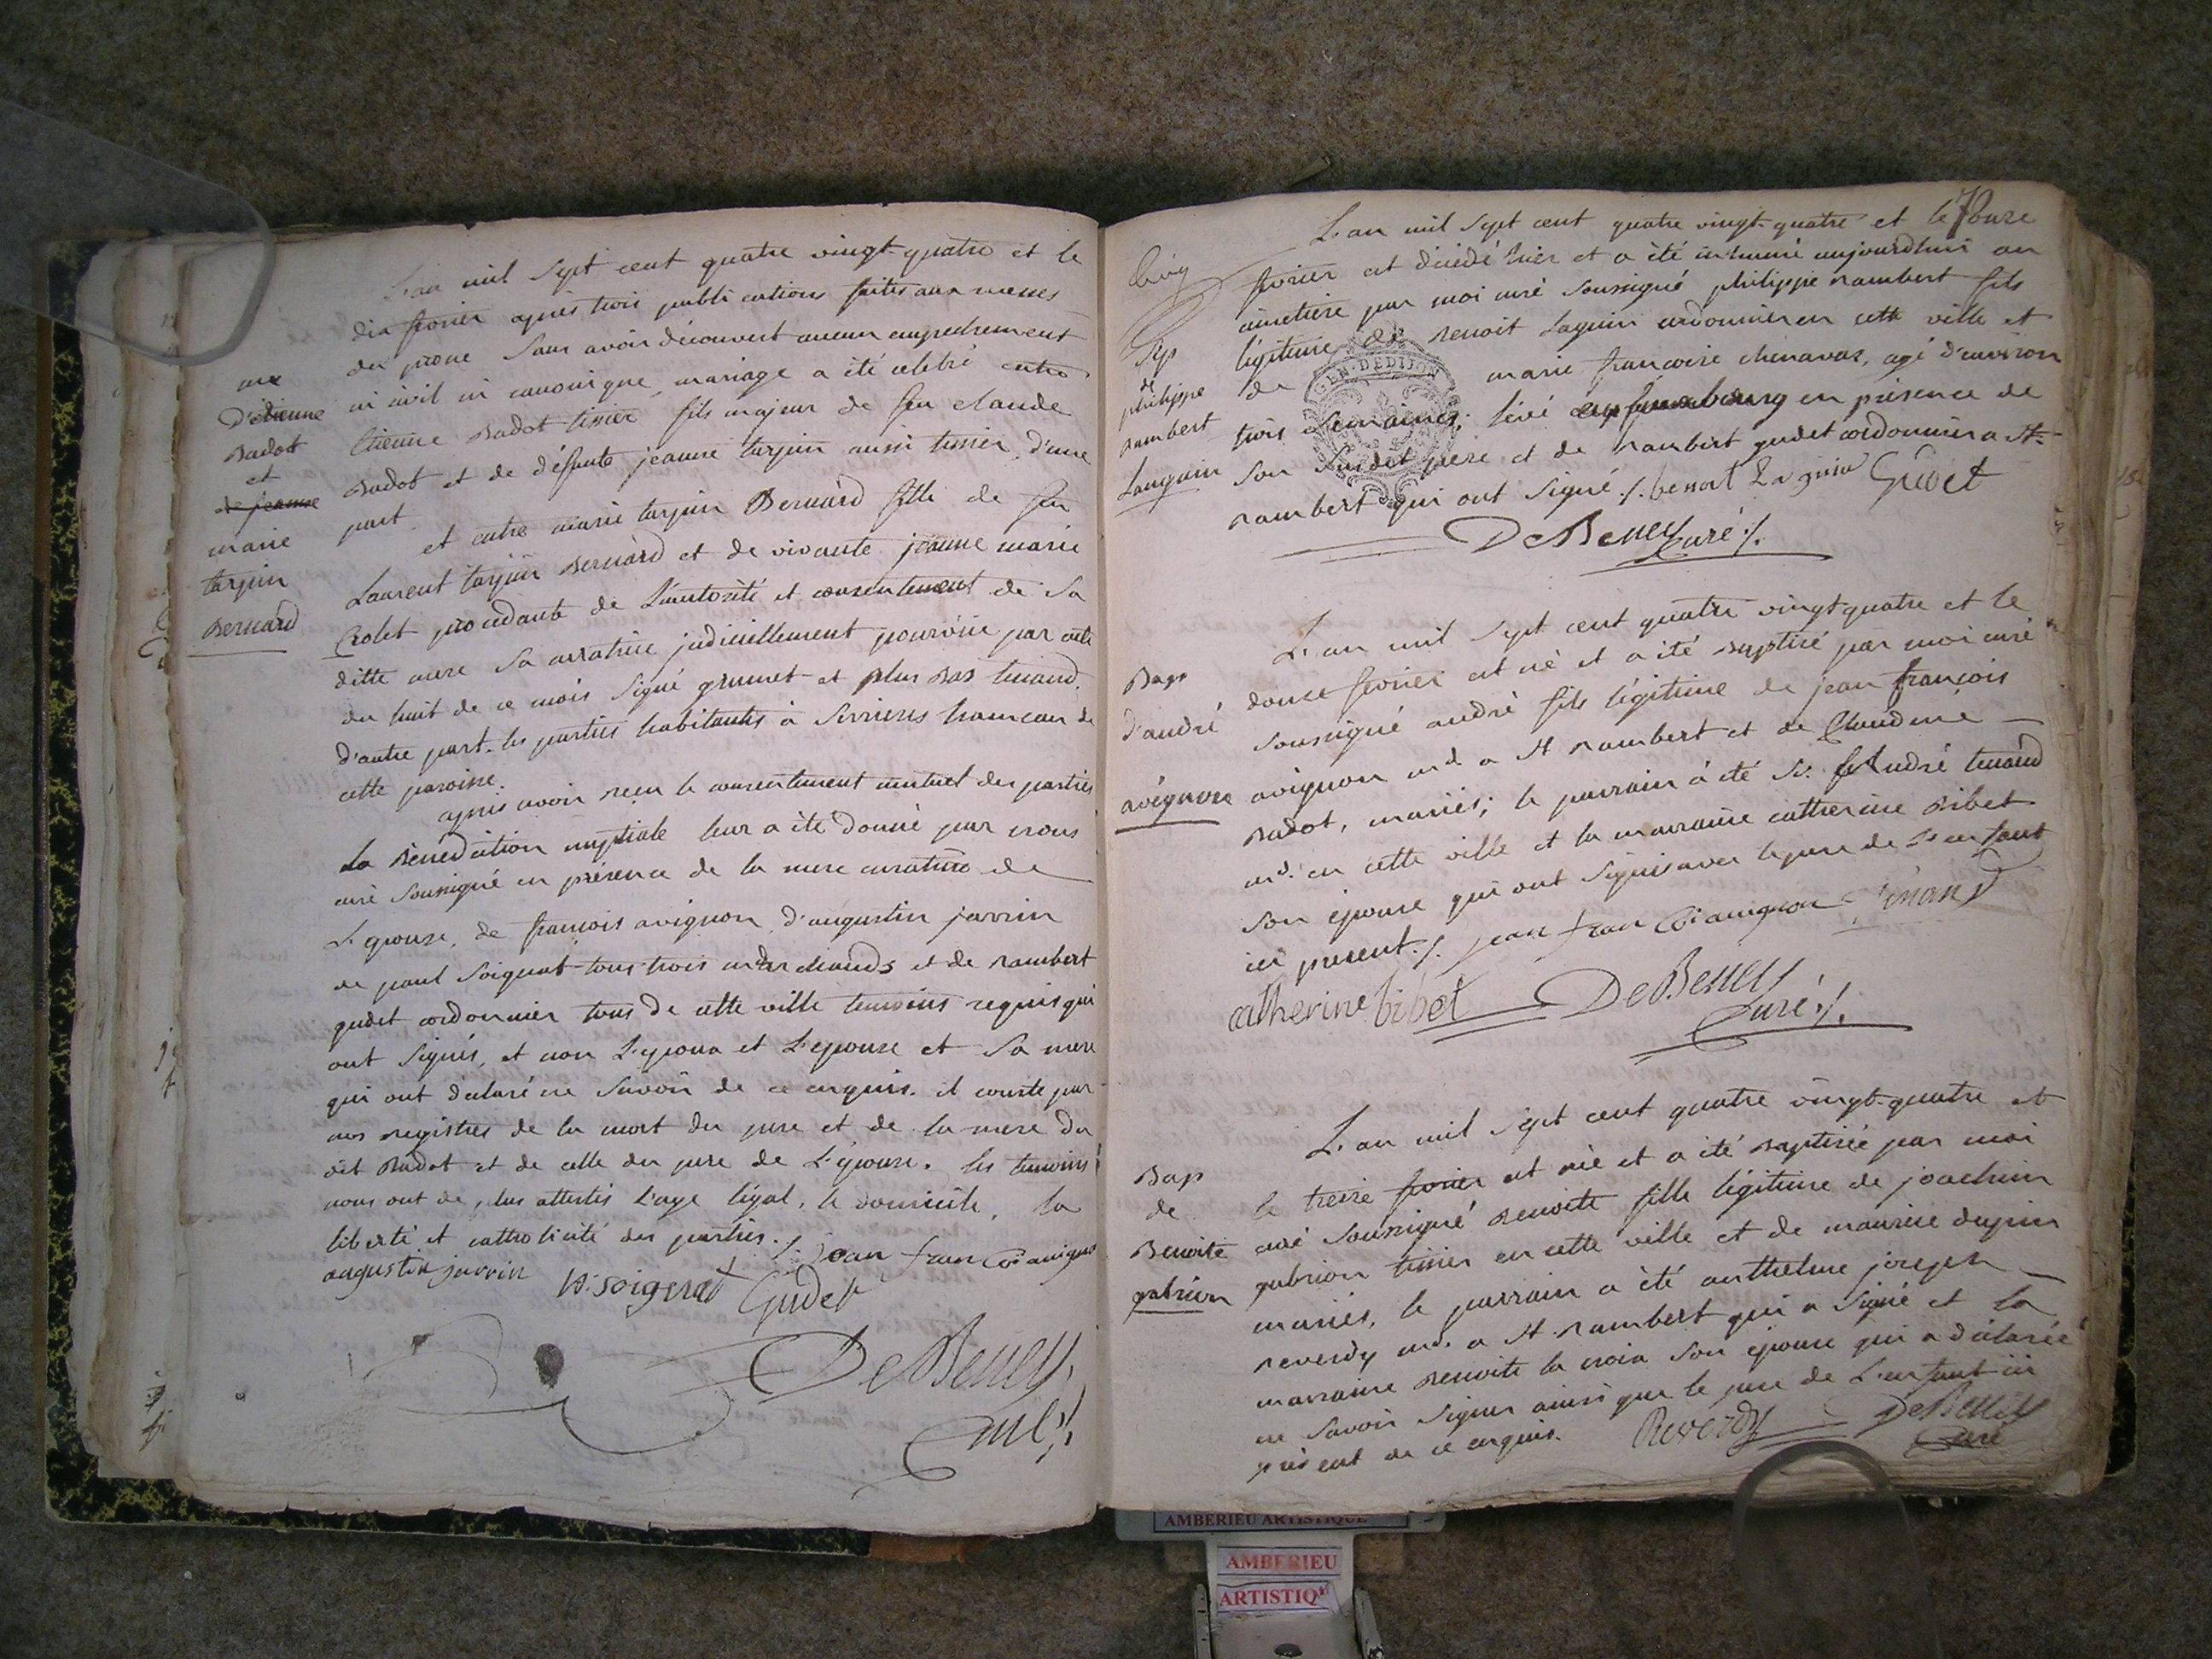 L'an mil sept cent quatre vingt-quatre et le
dix fevrier après trois publications faites aux messes
du prone sans avoir découvert aucun empechement
ni civil ni canonique, mariage a été celebré entre
Etienne Badot tissier fils majeur de feu claude
Badot et de défunte jeanne tarpin aussi tissier, d'une
part.
et entre marie tarpin Bernard fille de feu
Laurent tarpin Bernard et de vivante jeanne marie
Crolet procedante de l'autorité et consentement de sa
ditte mere sa curatrice judiciellement pourvüe par acte
du huit de ce mois signé grumet et plus bas tenand.
d'autre part. les parties habitantes à Serrieres hameau de
cette paroisse.
après avoir reçu le consentement mutuel des parties
La Bénédiction nuptiale leur a été donnée par nous
curé soussigné en présence de la mere curatrice de
L'epouse, de françois avignon, d'augustin jarrin
de paul Soignat tous trois marchands et de rambert
gudet cordonnier tous de cette ville temoins requis qui
ont signés, et non L'epoux et L'epouse et sa mere
qui ont déclaré ne savoir de ce enquis. il conste par
nos registres de la mort du pere et de la mere du
dit Badot et de celle du pere de L'epouse. les temoins
nous ont de plus attestés l'age légal, le domicile, la
liberté et catholicité des parties ./. jean francoi avignon
augustin jarrin p. soignat Gudet
De Beney
curé ./.
mx
D'etienne
Badot
et
de jeanne
marie
tarpin
Bernard
L'an mil sept cent quatre vingt-quatre et le onze
fevrier est décédé hier et a été inhumé aujourdhui au
cimetiere par moi curé soussigné philippe rambert fils
légitime de Benoit Laguin cordonnier en cette ville et
de marie françoise chenavas, agé d'environ
trois semaines, en présence de
son susdit pere et de rambert gudet cordonnier a St-
rambert qui ont signé ./. benoit Laguin Gudet
De Beney curé ./.
Sep
de
philippe
rambert
Languin
L'an mil sept cent quatre vingt quatre et le
douze fevrier est né et a été baptisé par moi curé
soussigné andré fils légitime de jean françois
avignon md. a St rambert et de Claudine
Badot, mariés; le parrain a été Sr. André tenand
md. en cette ville et la marraine catherine Bibet
son epouse qui ont signés avec le pere de l'enfant
ici present ./. jean francoi avignon tenand
catherine bibet De Beney
curé ./.
Bap
d'andré
avignon
L'an mil sept cent quatre vingt-quatre et
le treize fevrier est née et a été baptisée par moi
curé soussigné Benoite fille légitime de joachim
gabrion tissier en cette ville et de maurice dupin
mariés, le parrain a été anthelme joseph
reverdy md. a St. rambert qui a signé et la
marraine Benoite la croix son epouse qui a déclarée
ne savoir signer ainsi que le pere de L'enfant ici
présent de ce enquis. Reverdy De Beney
curé
Bap
de
Benoite
gabrion
AMBERIEU ARTISTIQUE
AMBERIEU
ARTISTIQ